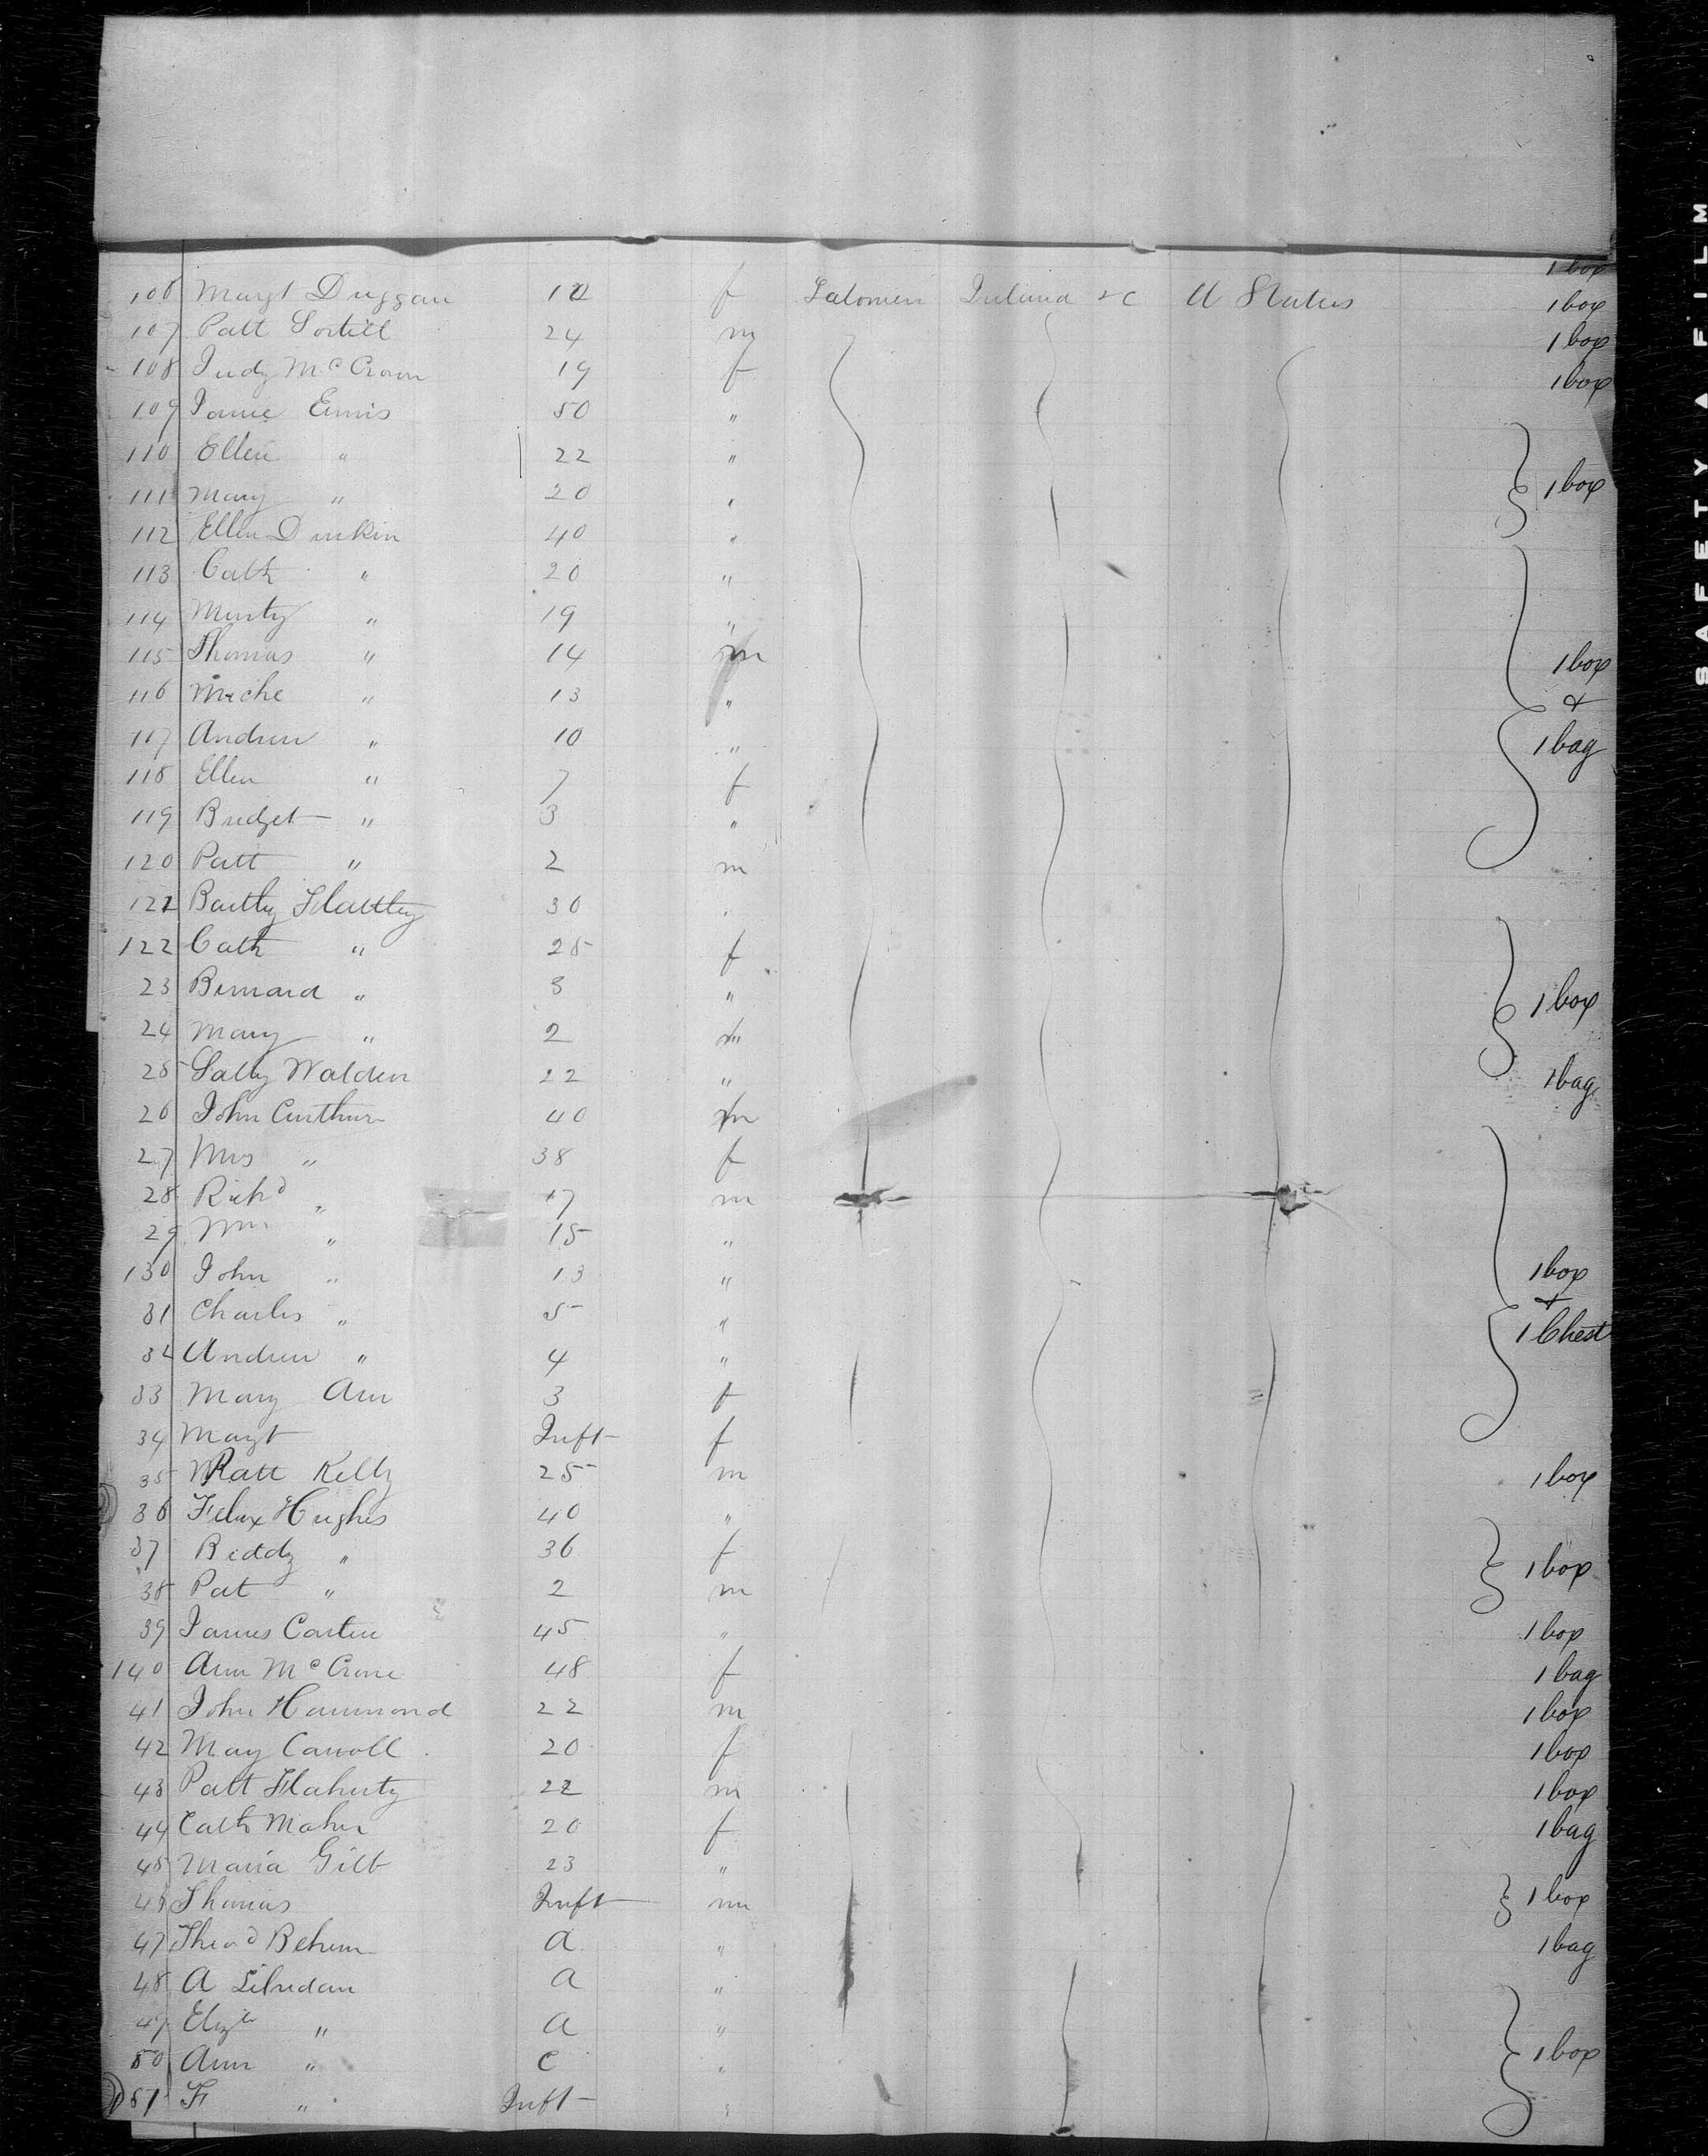 1 box
106 Margt Duggan 12 f Laboureer Ireland &c U States 1 box
107 Patt 24 m 1 box
108 Judy McCrown 19 f 1 box
109 Jame Ennis 50 "
110 Ellen " 22 "
111 Mary " 20 " 1 box
112 Ellen Dunkin 40 "
113 Cath " 20 "
114 " 19 "
115 Thomas " 14 m 1 box
116 Miche " 13 " &
117 Andrew " 10 " 1 bag
118 Ellen " 7 f
119 Bridget " 3 "
120 Patt " 2 m
121 Bartley Flattley 30 "
122 Cath " 25 f
23 Bernard " 3 " 1 box
24 Mary " 2
25 Sally Walden 22 " 1 bag
26 John Curthur 40 m
27 Mrs " 38 f
28 Richd " 17 m
29 Wm " 15 "
130 John " 13 " 1 box
31 Charles " 5 " &
32 Andrew " 4 " 1 Chest
33 Mary Ann 3 f
34 Margt Inft f
35 Patt Kelly 25 m 1 box
36 Felix Hughes 40 "
37 Biddy " 36 f 1 box
38 Pat " 2 m
39 James Carten 45 " 1 box
140 Ann McCrone 48 f 1 bag
41 John Hammond 22 m 1 box
42 May Carroll 20 f 1 box
43 Patt Flaherty 22 m 1 box
44 Cath Maher 20 f 1 bag
45 Maria Gilb 23 "
46 Thomas Inft m 1 box
47 Theod Behem a " 1 bag
48 A a "
49 Eliza " a "
50 Ann " C " 1 box
51 F " Inft "
SAFETY A FILM